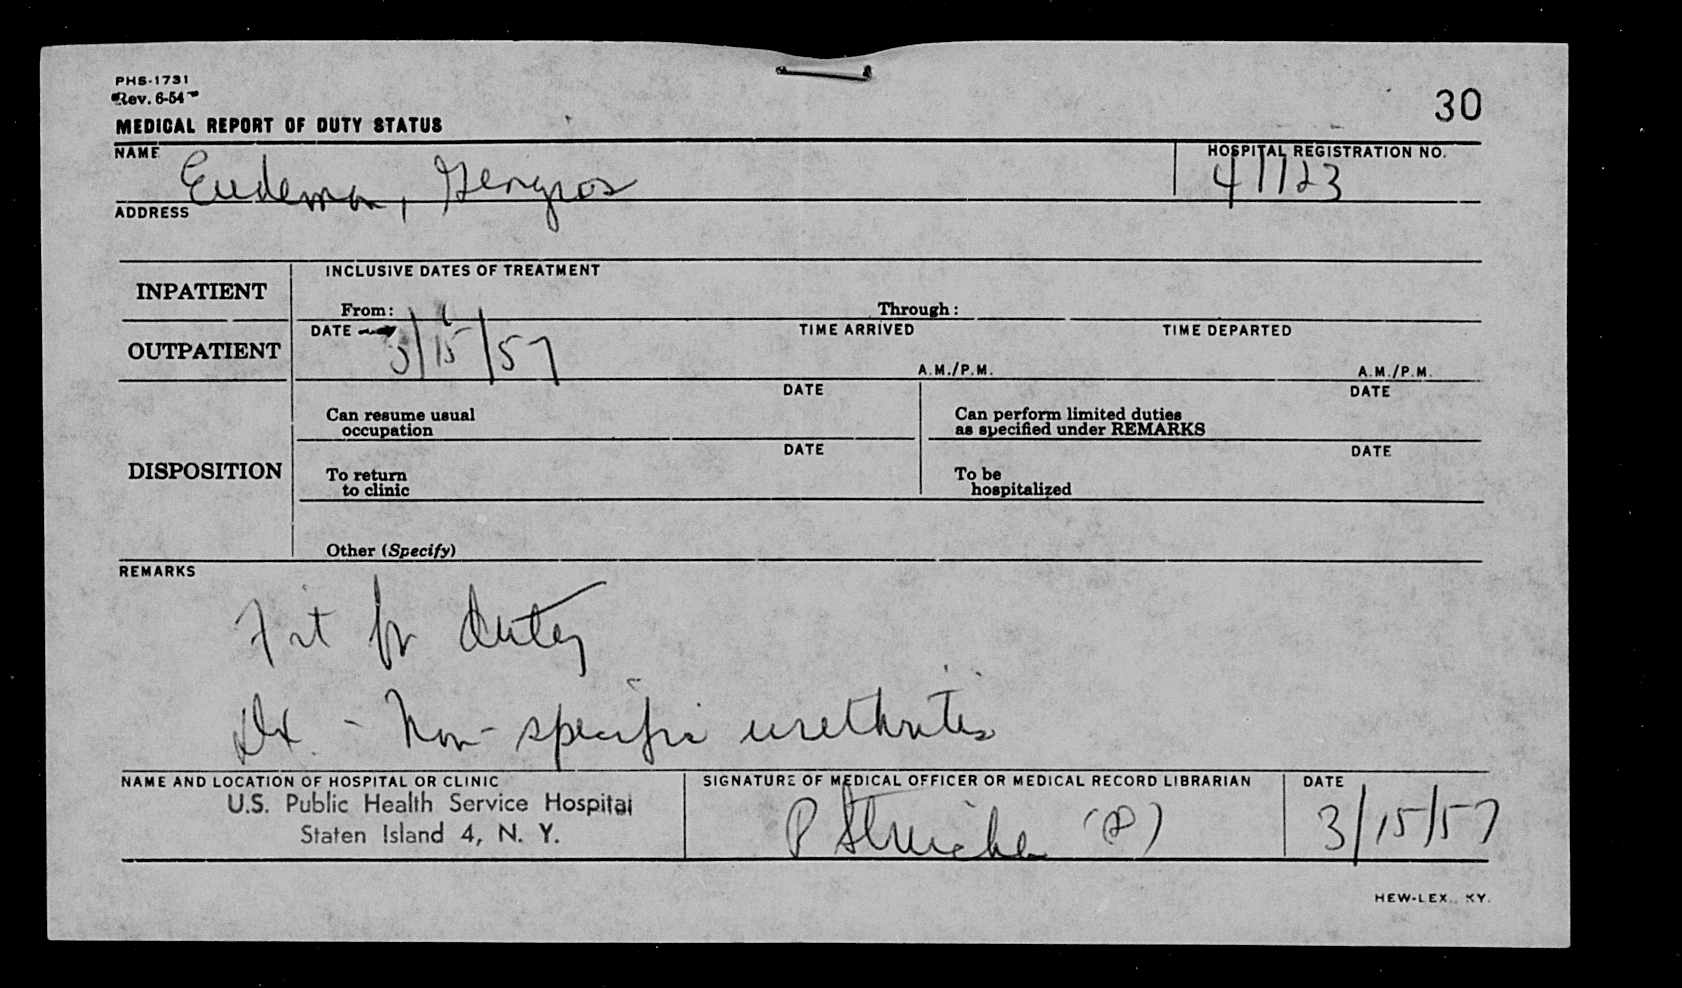 PHS-1731
Rev. 6-54
30
MEDICAL REPORT OF DUTY STATUS
NAME
HOSPITAL REGISTRATION NO.
41123
ADDRESS
INPATIENT
INCLUSIVE DATES OF TREATMENT
From:
Through:
OUTPATIENT
DATE
3/15/57
TIME ARRIVED
A.M./P.M.
TIME DEPARTED
A.M./P.M.
DISPOSITION
Can resume usual
occupation
DATE
Can perform limited duties
as specified under REMARKS
DATE
To return
to clinic
DATE
To be
hospitalized
DATE
Other (Specify)
REMARKS
Fit for duty
Dx. - Non-specific urethritis
NAME AND LOCATION OF HOSPITAL OR CLINIC
U.S. Public Health Service Hospital
Staten Island 4, N. Y.
SIGNATURE OF MEDICAL OFFICER OR MEDICAL RECORD LIBRARIAN
DATE
3/15/57
HEW-LEX., KY.